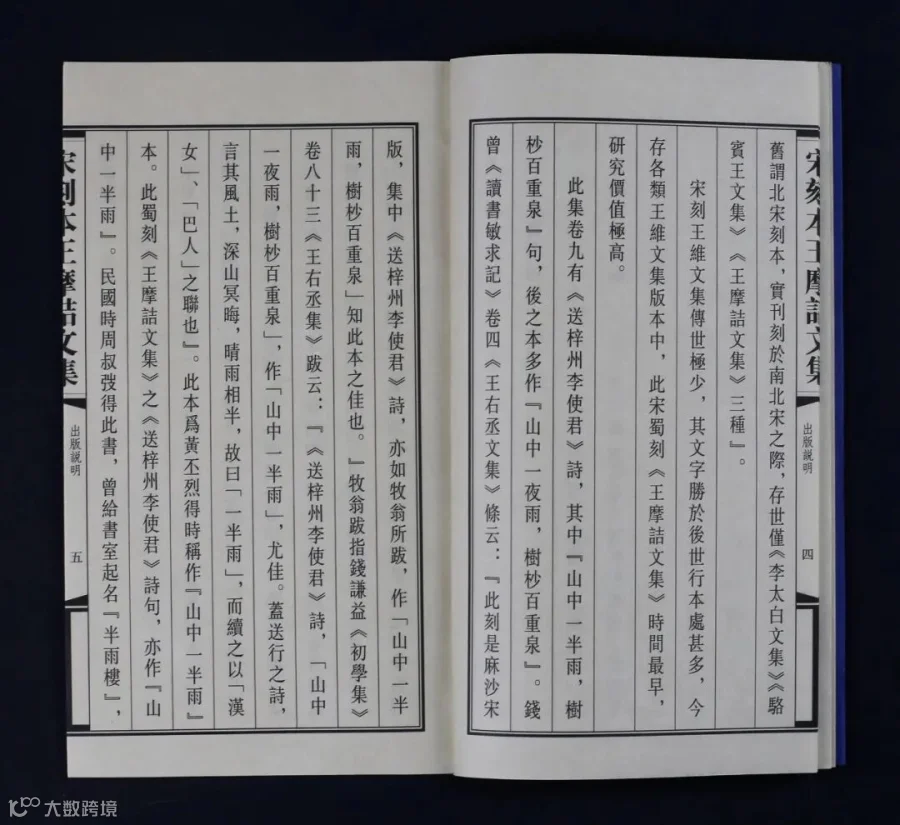 宋刻本王摩詰文集
出版説明
四
舊謂北宋刻本，實刊刻於南北宋之際，存世僅《李太白文集》《駱
賓王文集》《王摩詰文集》三種』。
宋刻王維文集傳世極少，其文字勝於後世行本處甚多，今
存各類王維文集版本中，此宋蜀刻《王摩詰文集》時間最早，
研究價值極高。
此集卷九有《送梓州李使君》詩，其中『山中一半雨，樹
杪百重泉』句，後之本多作『山中一夜雨，樹杪百重泉』。錢
曾《讀書敏求記》卷四《王右丞文集》條云：『此刻是麻沙宋
版，集中《送梓州李使君》詩，亦如牧翁所跋，作「山中一半
雨，樹杪百重泉」知此本之佳也。』牧翁跋指錢謙益《初學集》
卷八十三《王右丞集》跋云：『《送梓州李使君》詩，「山中
一夜雨，樹杪百重泉」，作「山中一半雨」，尤佳。蓋送行之詩，
言其風土，深山冥晦，晴雨相半，故曰「一半雨」，而續之以「漢
女」、「巴人」之聯也』。此本爲黃丕烈得時稱作『山中一半雨』
本。此蜀刻《王摩詰文集》之《送梓州李使君》詩句，亦作『山
中一半雨』。民國時周叔弢得此書，曾給書室起名『半雨樓』，
宋刻本王摩詰文集
出版説明
五
大数跨境